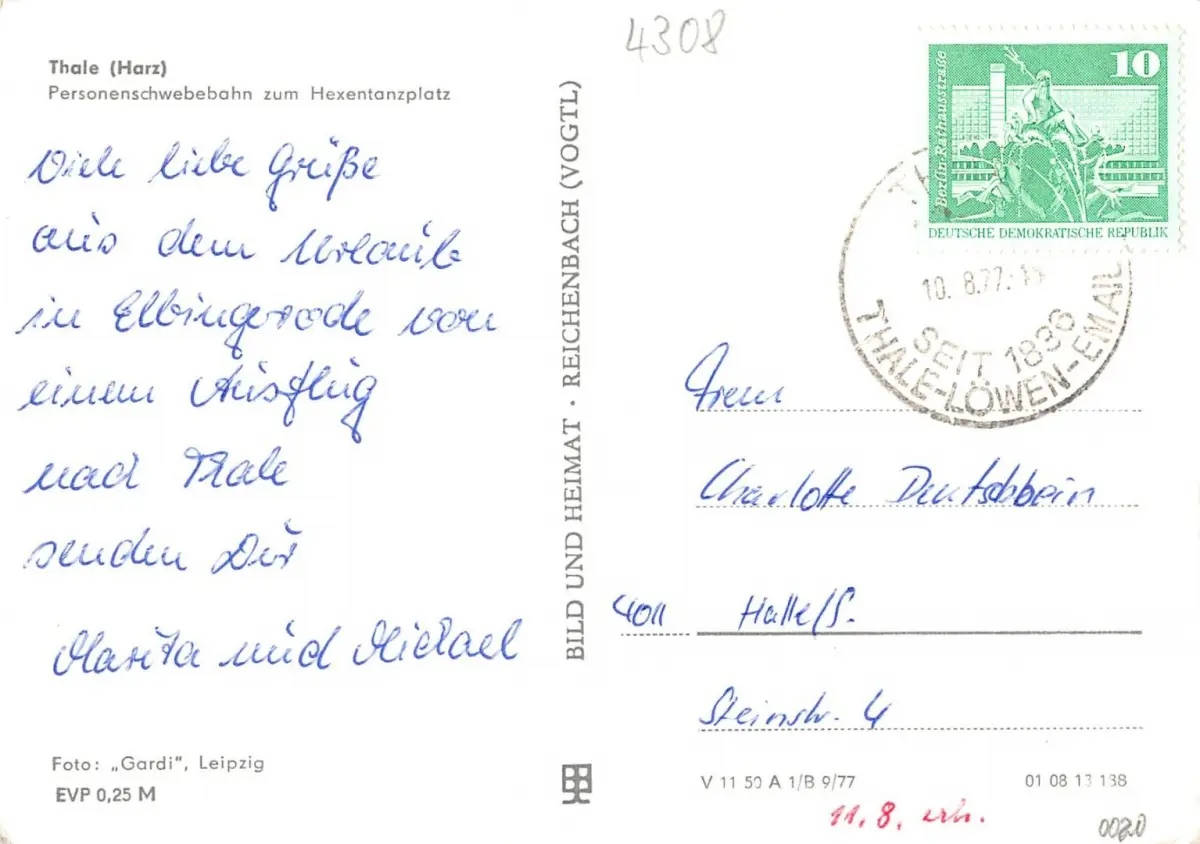 4308
Thale (Harz)
Personenschwebebahn zum Hexentanzplatz
Viele liebe Grüße
aus dem Urlaub
in Elbingerode von
einem Ausflug
nach Thale
senden Dir
Marita und Michael
Foto: „Gardi“, Leipzig
EVP 0,25 M
BILD UND HEIMAT · REICHENBACH (VOGTL)
10
Berlin-Rathausstraße
DEUTSCHE DEMOKRATISCHE REPUBLIK
10. 8.77
SEIT 1836
THALE-LÖWEN-EMAIL
Charlotte Deutschbein
4011 Halle/S.
Steinstr. 4
V 11 50 A 1/B 9/77
01 08 13 138
11. 8. erh.